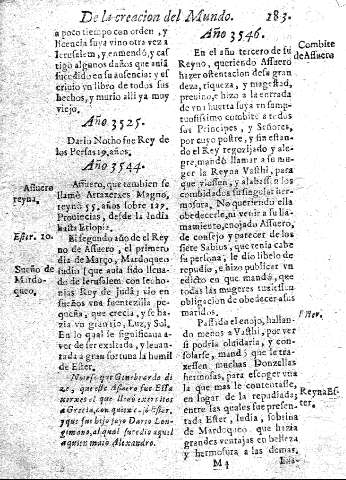 De la creacion del Mundo. 183.
a poco tiempo con orden, y
licencia suya vino otra vez a
Ierusalem, y enmendó, y cas
tigo algunos daños que auia
sucedido en su ausencia: y es
criuio vn libro de todos sus
hechos, y murio allí ya muy
viejo.
Año 3525.
Dario Notho fue Rey de
los Persas 19. años.
Año 3544.
Assuero
reyna.
Assuero, que tambien se
llamó Artaxerxes Magno,
reyna 55. años sobre 127.
Prouincias, desde la India
hasta Etiopia.
Ester. 10.
El segundo año de el Rey
no de Assuero, el primero
dia de Março, Mardoqueo
Sueño de
Mardo-
queo.
Iudio (que auia sido lleua-
do de Ierusalem con Iecho-
nias Rey de Iuda) vio en
sueños vna fuentezilla pe-
queña, que crecia, y se ha-
zia vn gran rio, Luz, y Sol,
En lo qual se significaua a-
uer de ser exaltada, y leuan-
tada á gran fortuna la humil
de Ester.
Notese que Genebrardo di
ze, que este Assuero fue
a Grecia, con quien Ester,
y que fue hijo suyo Dario Lon-
gimano, al qual sucedio aquel
a quien mato Alexandro.
Año 3546.
Combite
de Assuero
En el año tercero de su
Reyno, queriendo Assuero
hazer ostentacion de su gran
deza, riqueza, y magestad,
preuino, e hizo a la entrada
de vna huerta suya vn sump-
tuosissimo combite a todos
sus Principes, y Señores,
por cuyo postre, y fin estan-
do el Rey regozijado y ale-
gre, mandó llamar a su mu-
ger la Reyna Vasthi, para
que viessen, y alabassen los
combidados su singular her-
mosura. No queriendo ella
obedecerle, ni venir a su lla-
mamiento, enojado Assuero,
de consejo y parecer de los
siete Sabios, que tenia cabe
su persona, le dio libelo de
repudio, e hizo publicar vn
edicto en que mandó, que
todas las mugeres tuuiessen
obligacion de obedecer a sus
maridos.
Ester.
Passado el enojo, hallan-
do menos a Vasthi, por ver
si podria oluidarla, y con-
solarse, mandó que le tra-
xessen muchas Donzellas
hermosas, para escoger vna
la que mas le contentasse,
Reyna Es-
ter.
en lugar de la repudiada,
entre las quales fue presen-
tada Ester, Iudia, sobrina
de Mardoqueo que hazia
grandes ventajas en belleza
y hermosura a las demas.
M 4